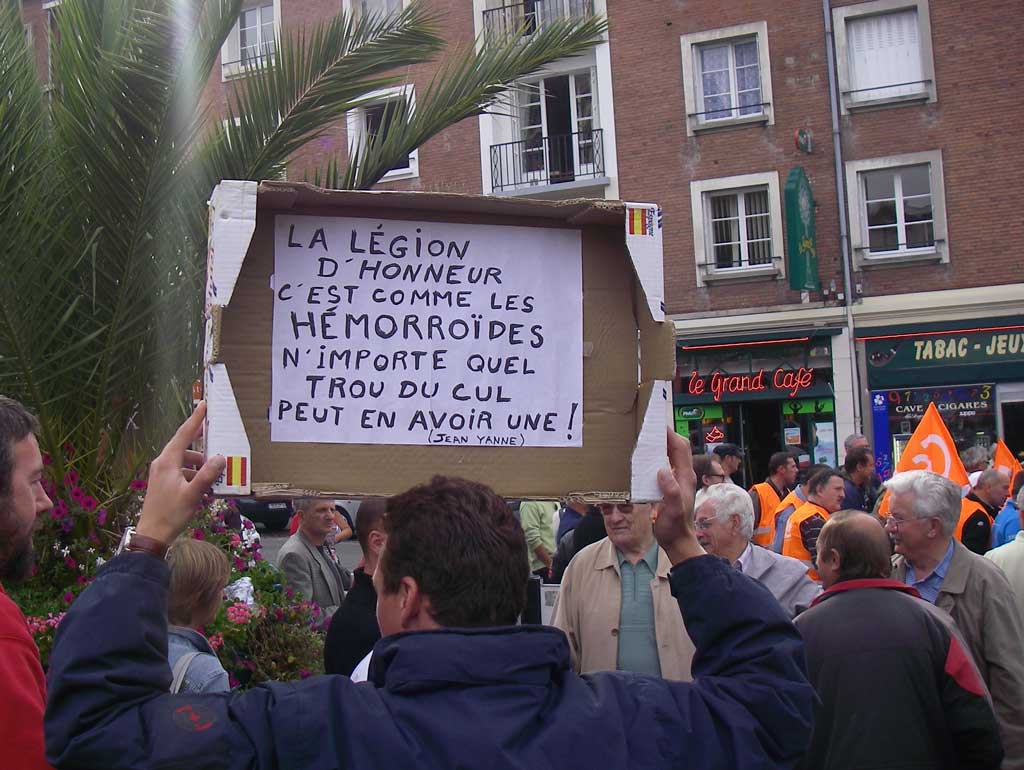 LA LÉGION
D'HONNEUR
C'EST COMME LES
HÉMORROÏDES
N'IMPORTE QUEL
TROU DU CUL
PEUT EN AVOIR UNE !
(JEAN YANNE)
le Grand Café
TABAC - JEUX
CAVE CIGARES